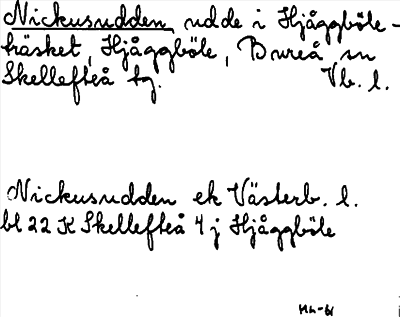 Nickusudden, udde i Hjåggböle-
träsket, Hjåggböle, Bureå sn
Skellefteå tg. Vb. l.
Nickusudden ek Västerb. l.
bl 22 K Skellefteå 4 j Hjåggböle